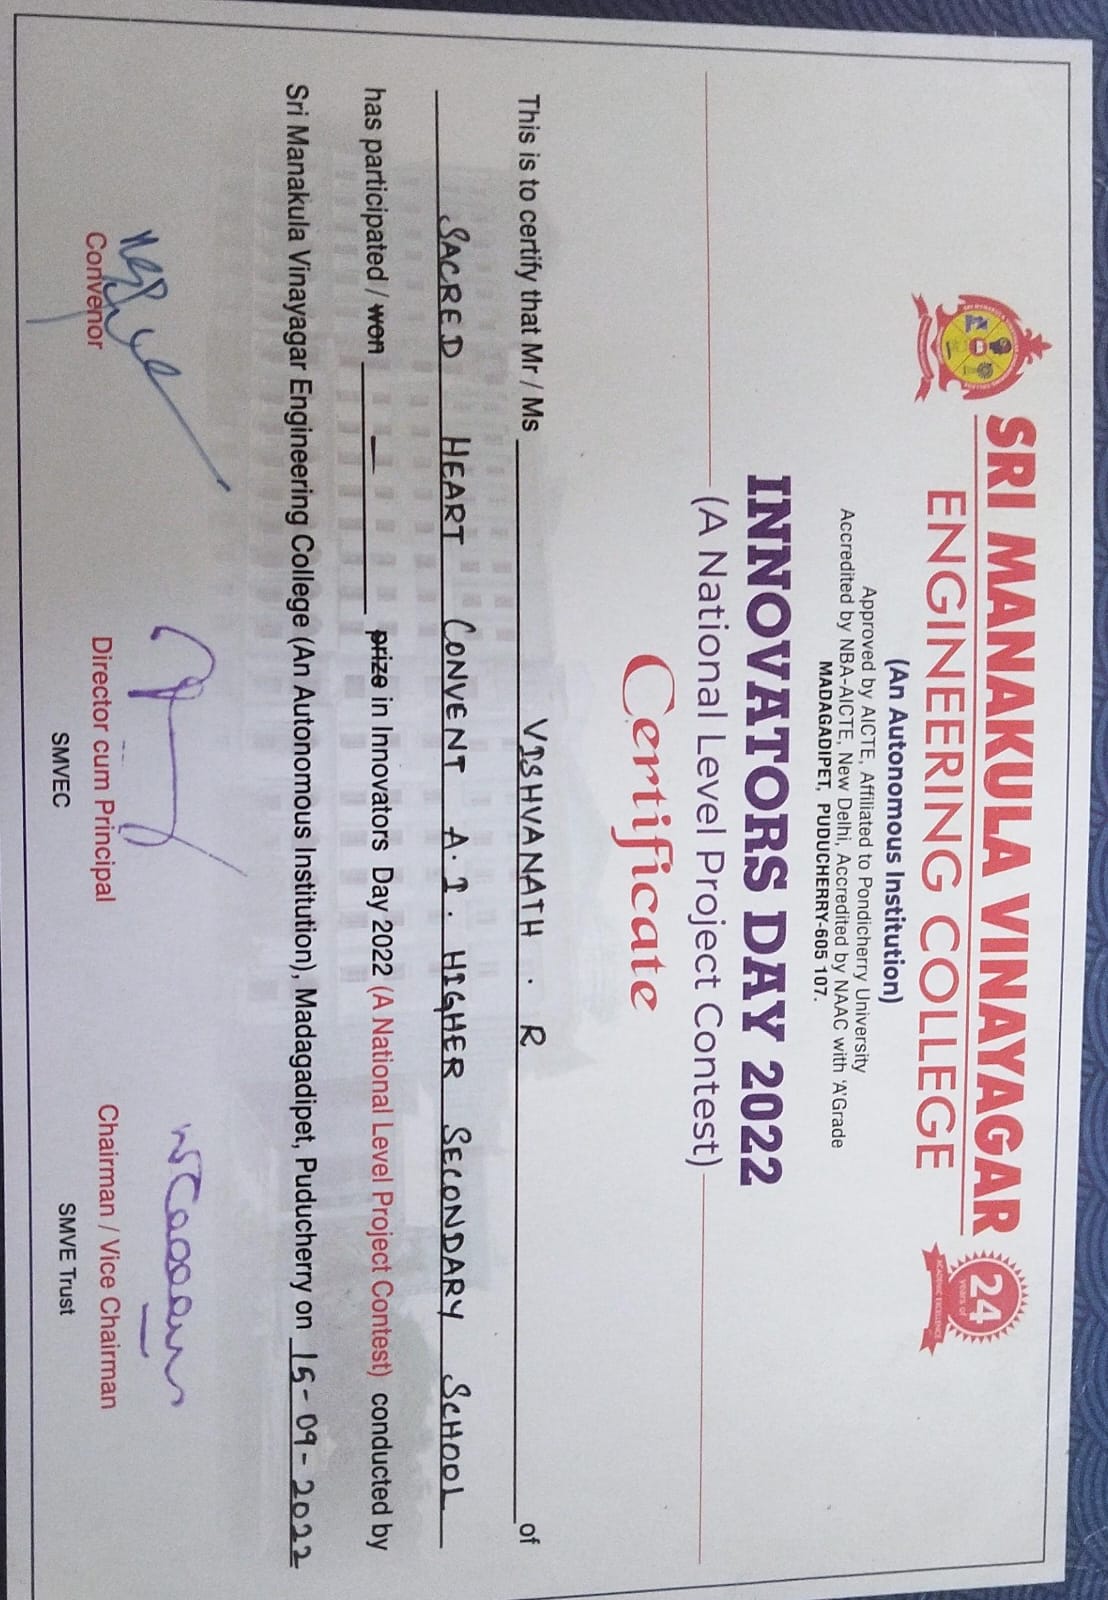 SRI MANAKULA VINAYAGAR
ENGINEERING COLLEGE
24
years of
ACADEMIC EXCELLENCE
(An Autonomous Institution)
Approved by AICTE, Affiliated to Pondicherry University
Accredited by NBA-AICTE, New Delhi, Accredited by NAAC with 'A'Grade
MADAGADIPET, PUDUCHERRY-605 107.
INNOVATORS DAY 2022
(A National Level Project Contest)
Certificate
This is to certify that Mr / Ms VISHVANATH . R of
SACRED HEART CONVENT A.I. HIGHER SECONDARY SCHOOL
has participated / won — prize in Innovators Day 2022 (A National Level Project Contest) conducted by
Sri Manakula Vinayagar Engineering College (An Autonomous Institution), Madagadipet, Puducherry on 15-09-2022
Convenor
Director cum Principal
SMVEC
Chairman / Vice Chairman
SMVE Trust